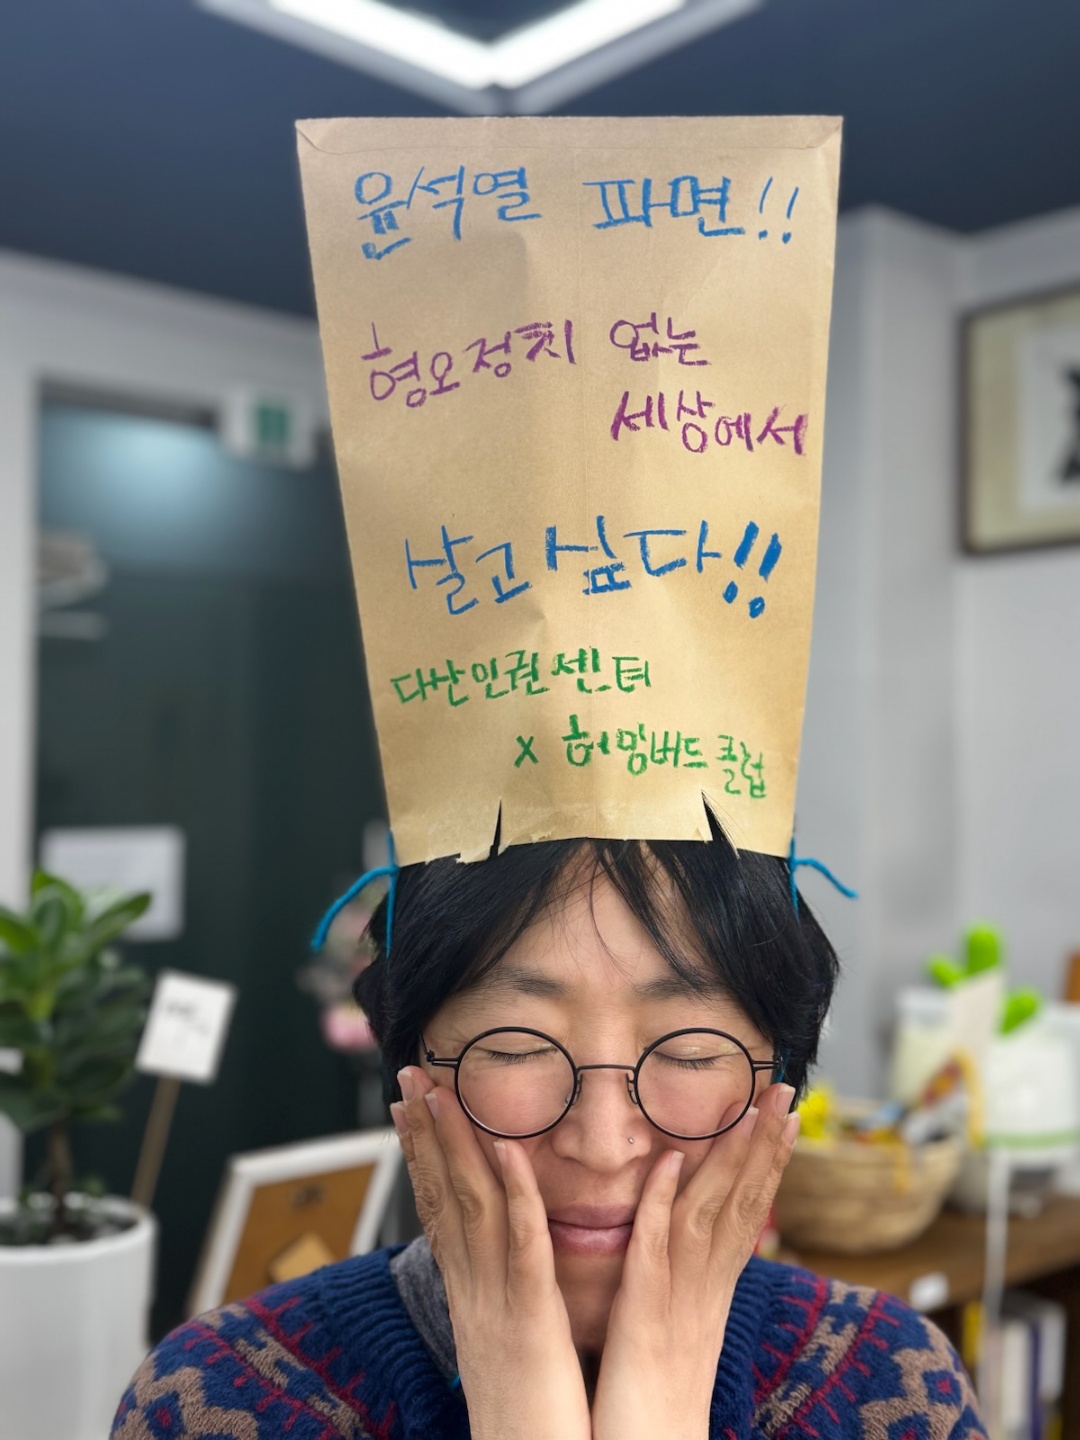 윤석열 파면!!
혐오정치 없는
세상에서
살고싶다!!
다산인권센터
x 허밍버드클럽